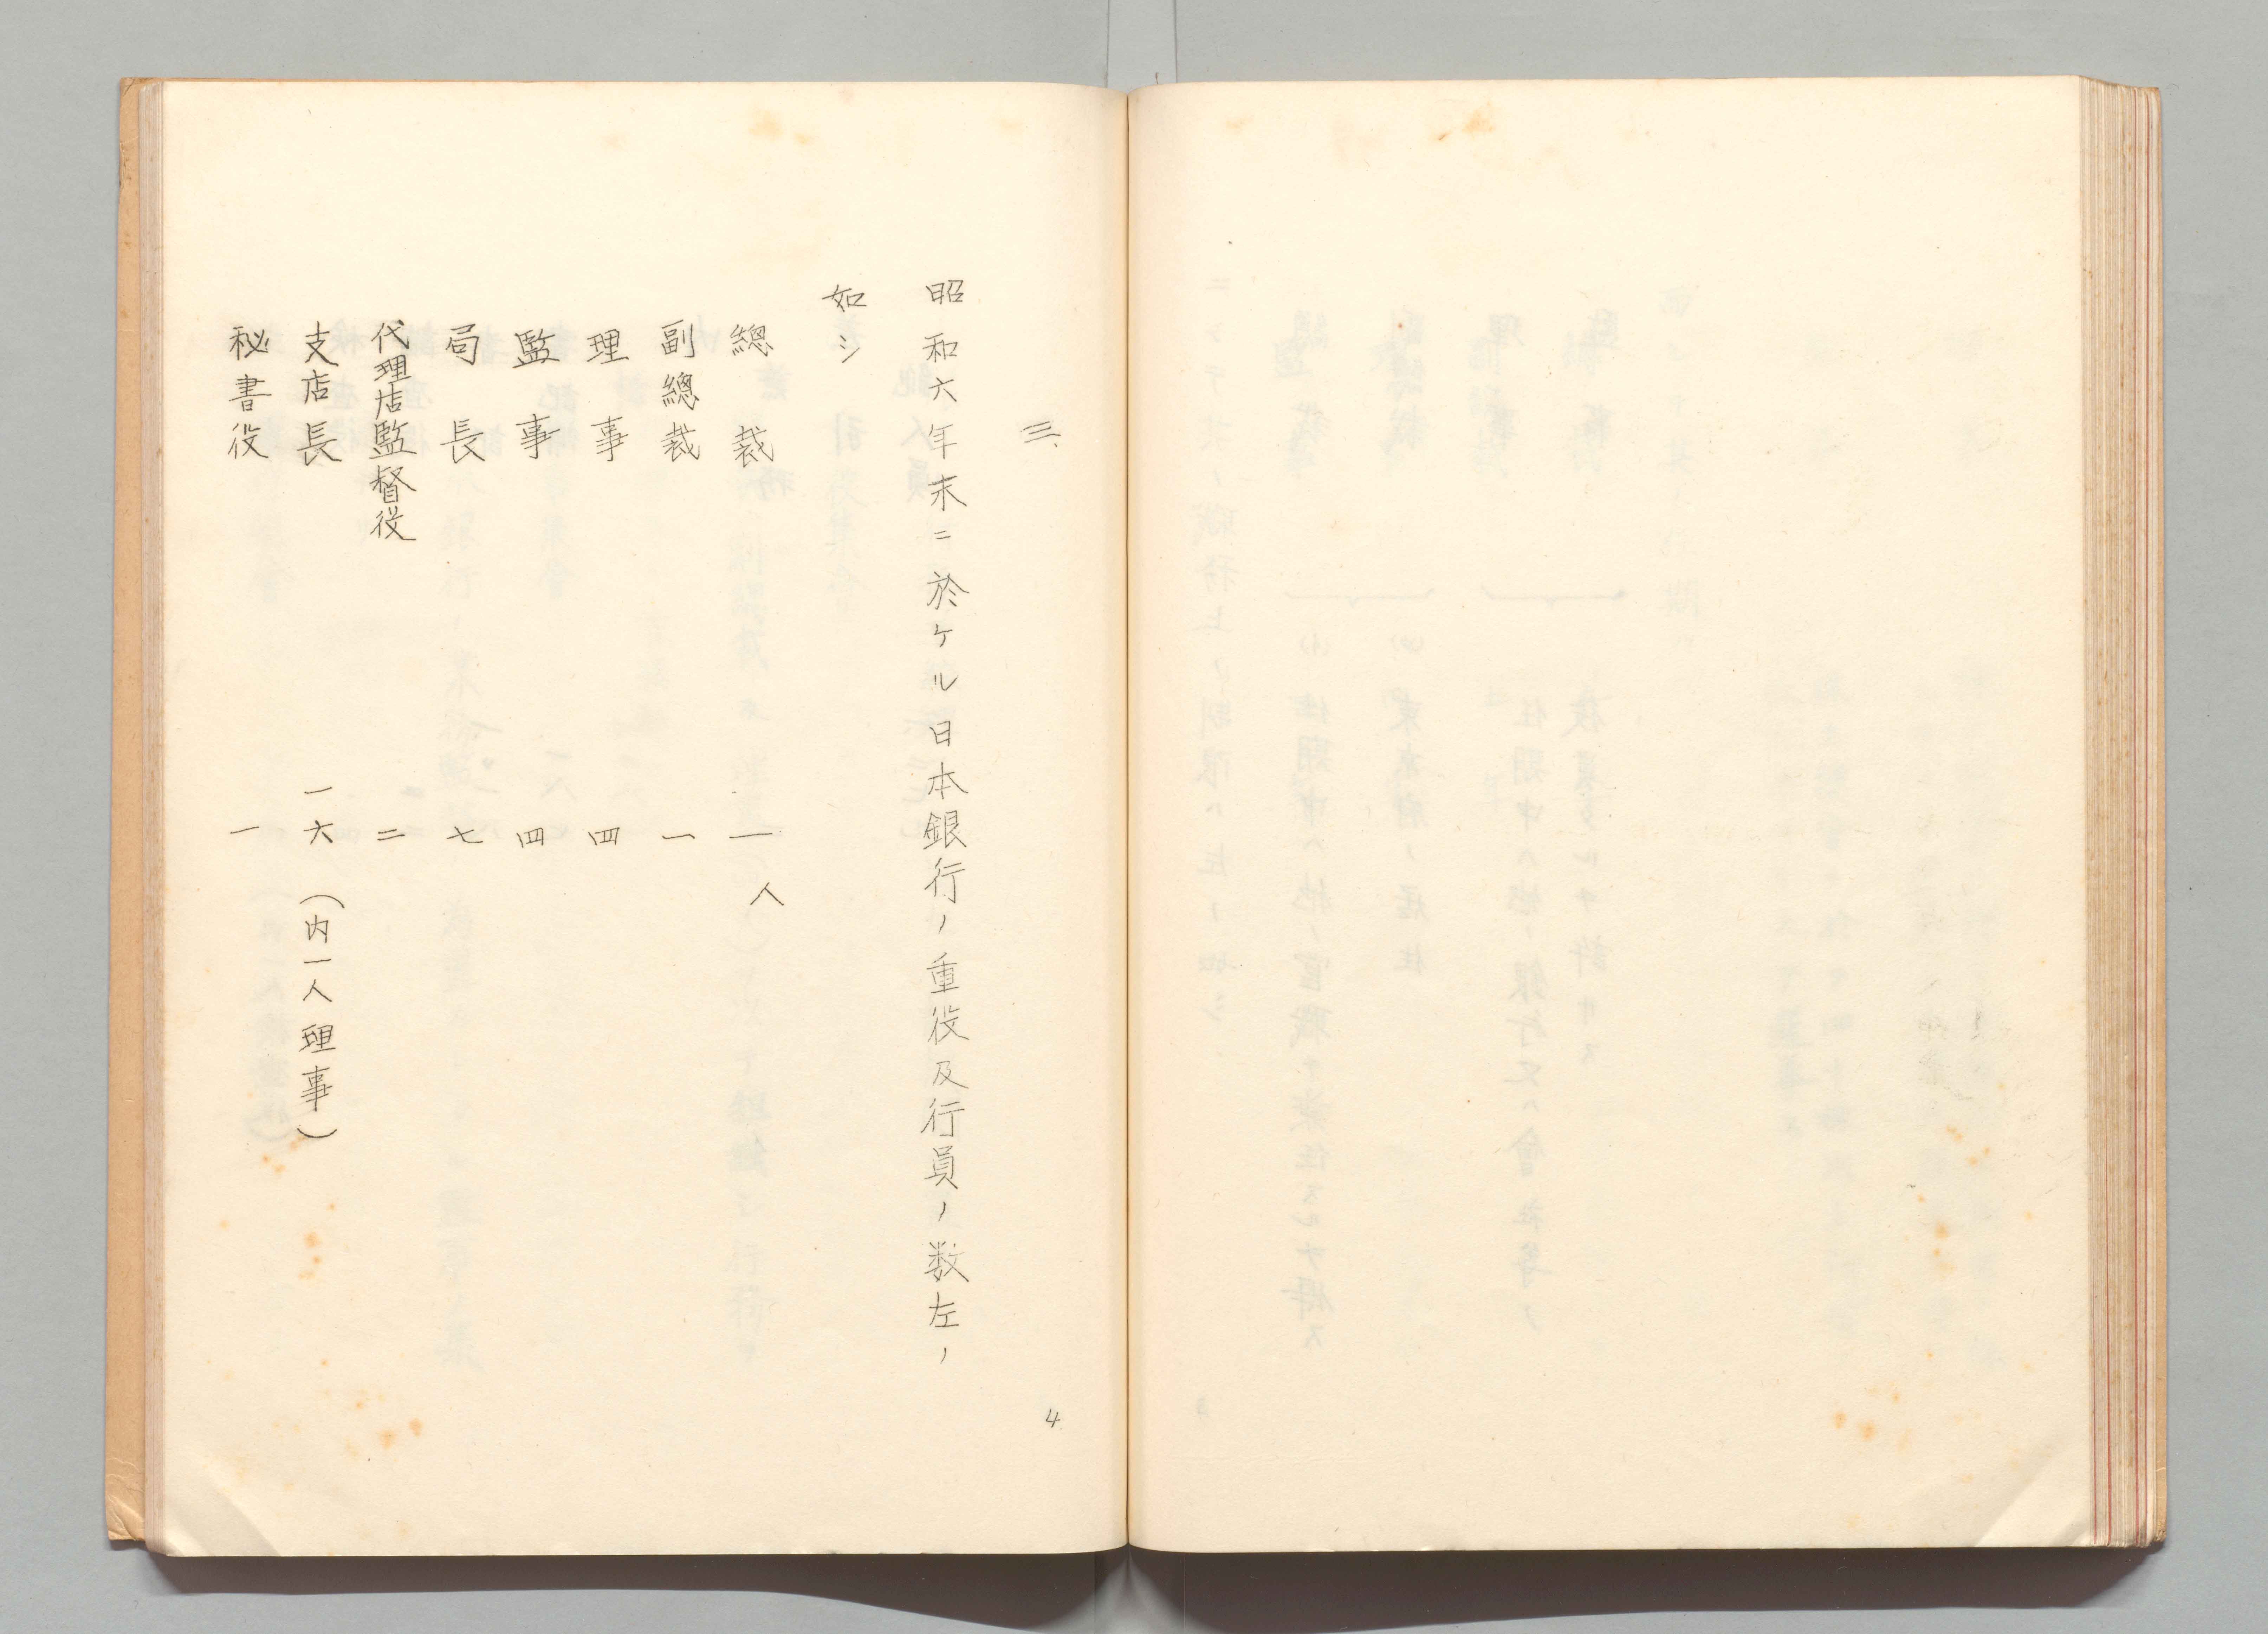 三、
昭和六年末ニ於ケル日本銀行ノ重役及行員ノ数左ノ
如シ
總裁 一人
副總裁 一
理事 四
監事 四
局長 七
代理店監督役 二
支店長 一六（内一人理事）
秘書役 一
4